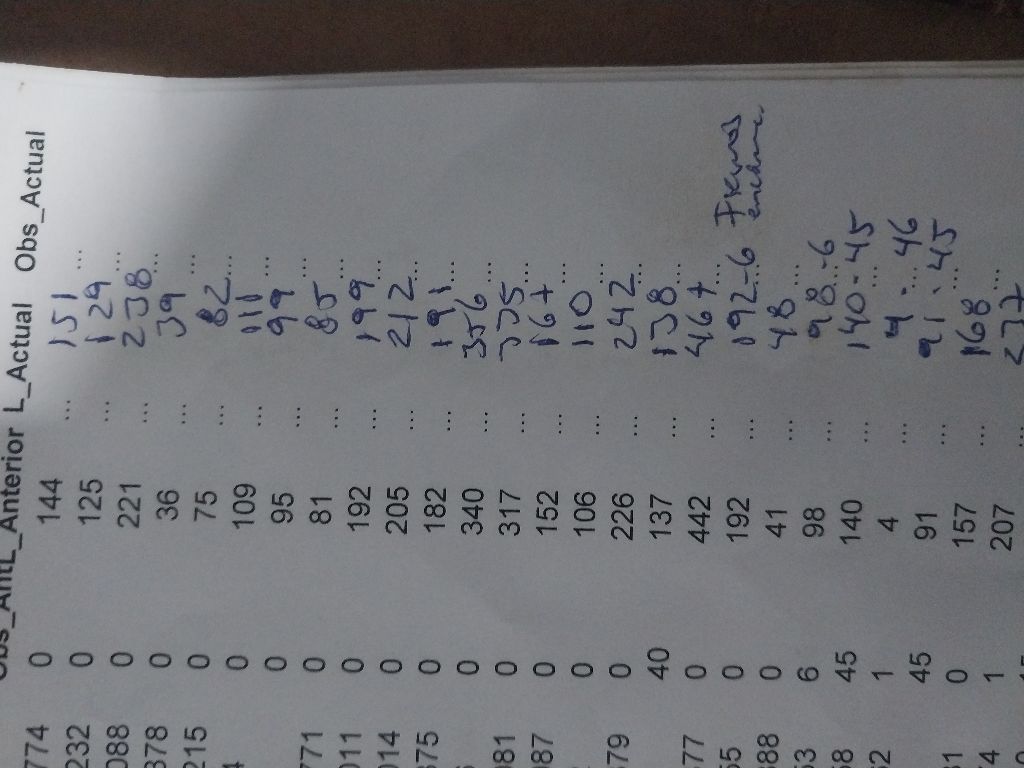 L_Anterior L_Actual Obs_Actual
774 0 144 ... 151 ...
232 0 125 ... 129 ...
088 0 221 ... 238 ...
378 0 36 ... 39 ...
215 0 75 ... 82 ...
4 0 109 ... 111 ...
0 95 ... 99 ...
771 0 81 ... 85 ...
011 0 192 ... 199 ...
014 0 205 ... 212 ...
375 0 182 ... 191 ...
0 340 ... 356 ...
981 0 317 ... 335 ...
087 0 152 ... 167 ...
0 106 ... 110 ...
679 0 226 ... 242 ...
40 137 ... 138 ...
677 0 442 ... 467 ...
55 0 192 ... 192-6 ...
888 0 41 ... 48 ...
53 6 98 ... 98-6 ...
58 45 140 ... 140-45 ...
52 1 4 ... 4-46 ...
45 91 ... 91-45 ...
51 0 157 ... 168 ...
4 1 207 ... 237